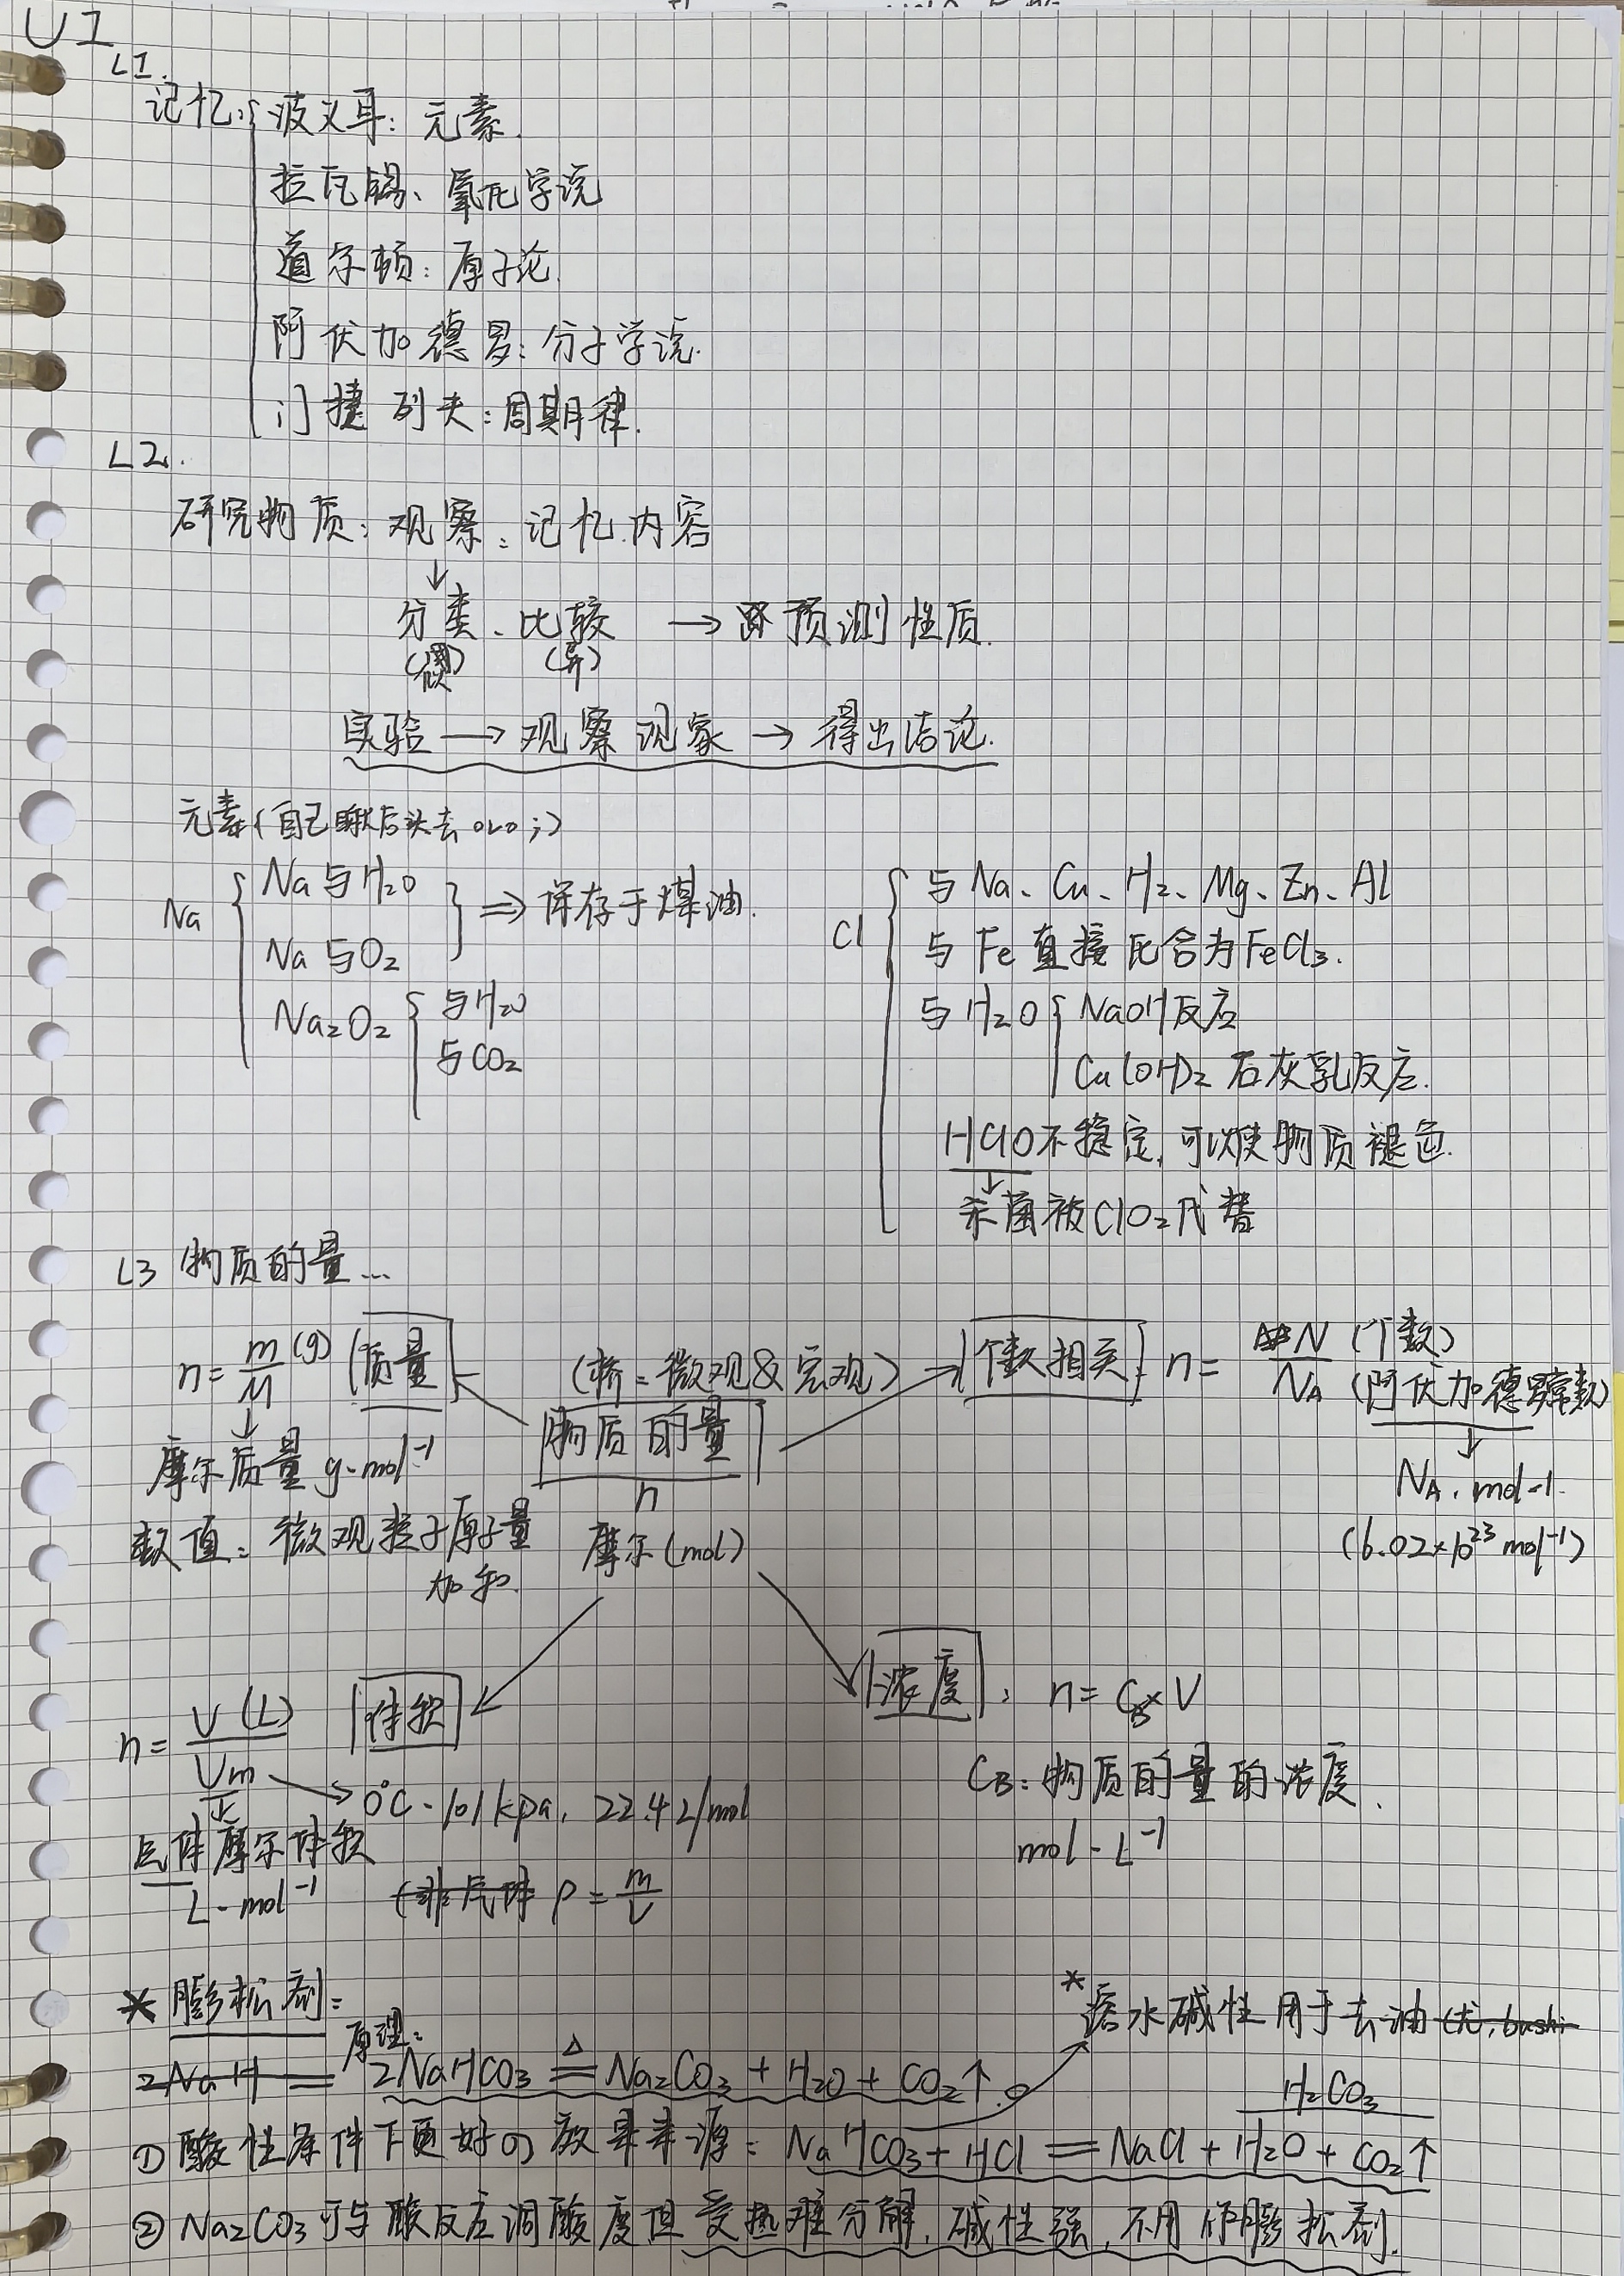 U1
L1.
记忆:
波义耳: 元素.
拉瓦锡、氧化学说
道尔顿: 原子论.
阿伏加德罗: 分子学说.
门捷列夫: 周期律.
L2.
研究物质: 观察: 记忆.内容
↓
分类、比较 → 预测性质.
(异)
实验 → 观察现象 → 得出结论.
元素(自己瞅后头去 oLo ;)
Na
Na与H₂O
Na与O₂
⇒ 保存于煤油.
Na₂O₂
与H₂O
与CO₂
Cl
与Na、Cu、H₂、Mg、Zn、Al
与Fe直接化合为FeCl₃.
与H₂O
NaOH反应
Ca(OH)₂ 石灰乳反应.
HClO不稳定, 可以使物质褪色.
↓
杀菌被ClO₂代替
L3 物质的量...
n= m(g)/M 质量
(桥: 微观&宏观)
个数相关: n= N (个数)/N_A (阿伏加德罗常数)
↓
摩尔质量 g·mol⁻¹
物质的量
n
摩尔(mol)
↓
N_A. mol-1.
(6.02×10²³mol⁻¹)
数值: 微观粒子原子量
加和.
n= V(L)/Vm 体积
→ 0℃·101kpa, 22.4L/mol
↓
气体摩尔体积
L·mol⁻¹
(非气体 ρ= m/V
浓度: n= C_B×V
C_B: 物质的量的浓度.
mol·L⁻¹
* 膨松剂:
2NaH =
原理:
2NaHCO₃ ≜ Na₂CO₃ + H₂O + CO₂↑.
* 溶水碱性用于去油(尤, bushi
H₂CO₃
① 酸性条件下更好的效率来源: NaHCO₃ + HCl = NaCl + H₂O + CO₂↑
② Na₂CO₃可与酸反应调酸度但受热难分解, 碱性强, 不用作膨松剂.